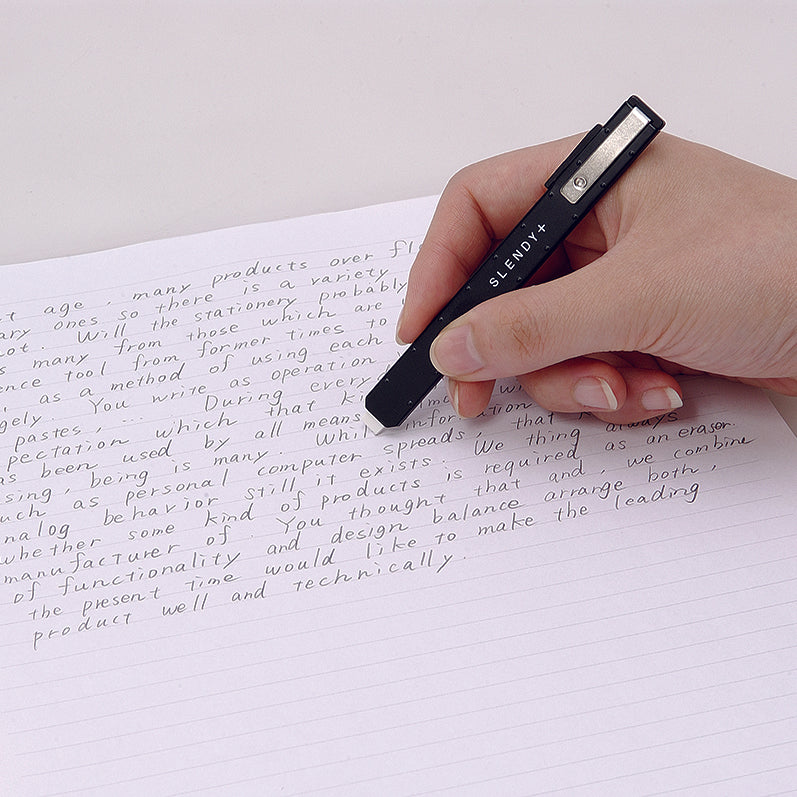 t age, many products over fl
ary ones so there is a variety
ot. Will the stationery probably
s many from those which are
ence tool from former times to
, as a method of using each
gely. You write as operation
pastes, ... During every
pectation which that ki
as been used by all means information
sing, being is many. Whil spreads, that
uch as personal computer We thing always
nalog behavior still it exists. required as an eraser
whether some kind of products is and, we combine
manufacturer of. You thought that arrange both,
of functionality and design balance the leading
the present time would like to make
product well and technically.
SLENDY+